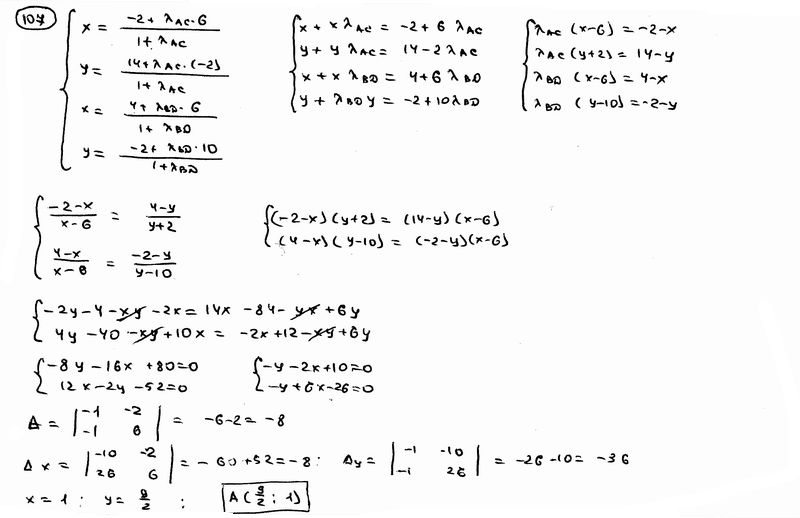 107
x = (-2 + λAC · 6) / (1 + λAC)
y = (14 + λAC · (-2)) / (1 + λAC)
x = (4 + λBD · 6) / (1 + λBD)
y = (-2 + λBD · 10) / (1 + λBD)
x + x λAC = -2 + 6 λAC
y + y λAC = 14 - 2 λAC
x + x λBD = 4 + 6 λBD
y + λBD y = -2 + 10 λBD
λAC (x-6) = -2-x
λAC (y+2) = 14-y
λBD (x-6) = 4-x
λBD (y-10) = -2-y
(-2-x) / (x-6) = (4-y) / (y+2)
(4-x) / (x-8) = (-2-y) / (y-10)
(-2-x)(y+2) = (14-y)(x-6)
(4-x)(y-10) = (-2-y)(x-6)
-2y-4-xy-2x = 14x-84-yx+6y
4y-40-xy+10x = -2x+12-xy+6y
-8y-16x+80=0
12x-2y-52=0
-y-2x+10=0
-y+6x-26=0
Δ = |-1 -2; -1 6| = -6-2 = -8
Δx = |-10 -2; 26 6| = -60+52 = -8; Δy = |-1 -10; -1 26| = -26-10 = -36
x = 1; y = 9/2; A(9/2; 1)